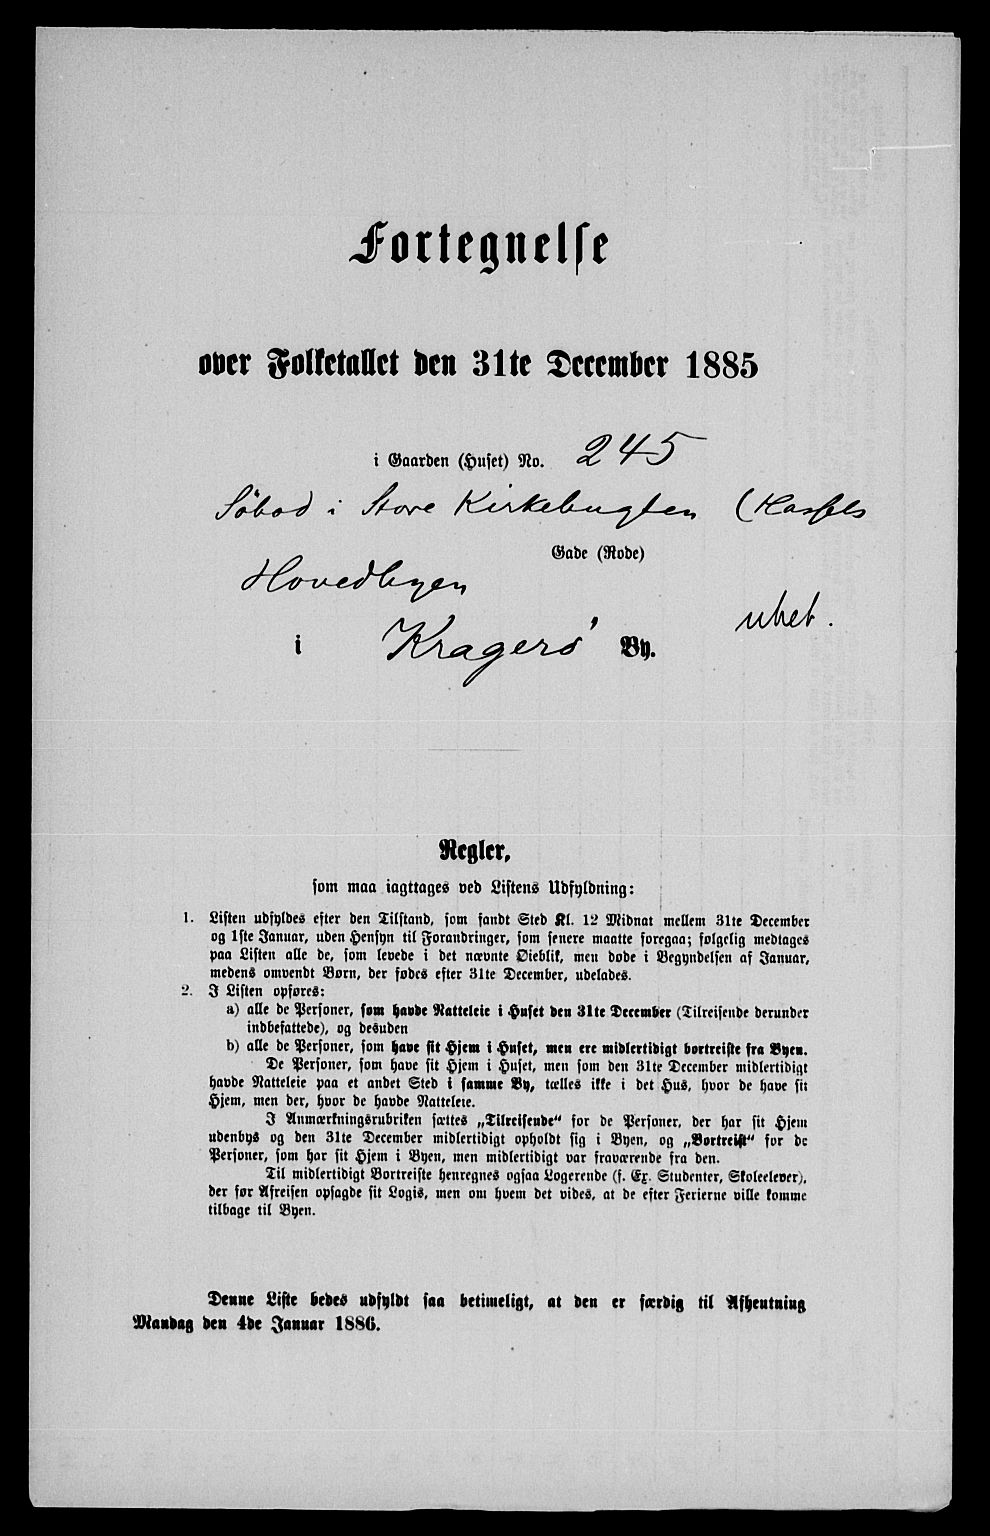 Fortegnelse
over Folketallet den 31te December 1885
i Gaarden (Huset) No. 245
Söbod i Store Kirkebugten (Hassels
Gade (Rode)
Hovedbyen
ubeb.
i Kragerö By.
Regler,
som maa iagttages ved Listens Udfyldning:
1. Listen udfyldes efter den Tilstand, som fandt Sted Kl. 12 Midnat mellem 31te December
og 1ste Januar, uden Hensyn til Forandringer, som senere maatte foregaa; følgelig medtages
paa Listen alle de, som levede i det nævnte Øieblik, men døde i Begyndelsen af Januar,
medens omvendt Børn, der fødes efter 31te December, udelades.
2. I Listen opføres:
a) alle de Personer, som havde Natteleie i Huset den 31te December (Tilreisende derunder
indbefattede), og desuden
b) alle de Personer, som have sit Hjem i Huset, men ere midlertidigt bortreiste fra Byen.
De Personer, som have sit Hjem i Huset, men som den 31te December midlertidigt
havde Natteleie paa et andet Sted i samme By, tælles ikke i det Hus, hvor de have sit
Hjem, men der, hvor de havde Natteleie.
I Anmærkningsrubriken sættes „Tilreisende“ for de Personer, der har sit Hjem
udenbys og den 31te December midlertidigt opholdt sig i Byen, og „Bortreist“ for de
Personer, som har sit Hjem i Byen, men midlertidigt var fraværende fra den.
Til midlertidigt Bortreiste henregnes ogsaa Logerende (f. Ex. Studenter, Skoleelever),
der før Afreisen opsagde sit Logis, men om hvem det vides, at de efter Ferierne ville komme
tilbage til Byen.
Denne Liste bedes udfyldt saa betimeligt, at den er færdig til Afhentning
Mandag den 4de Januar 1886.